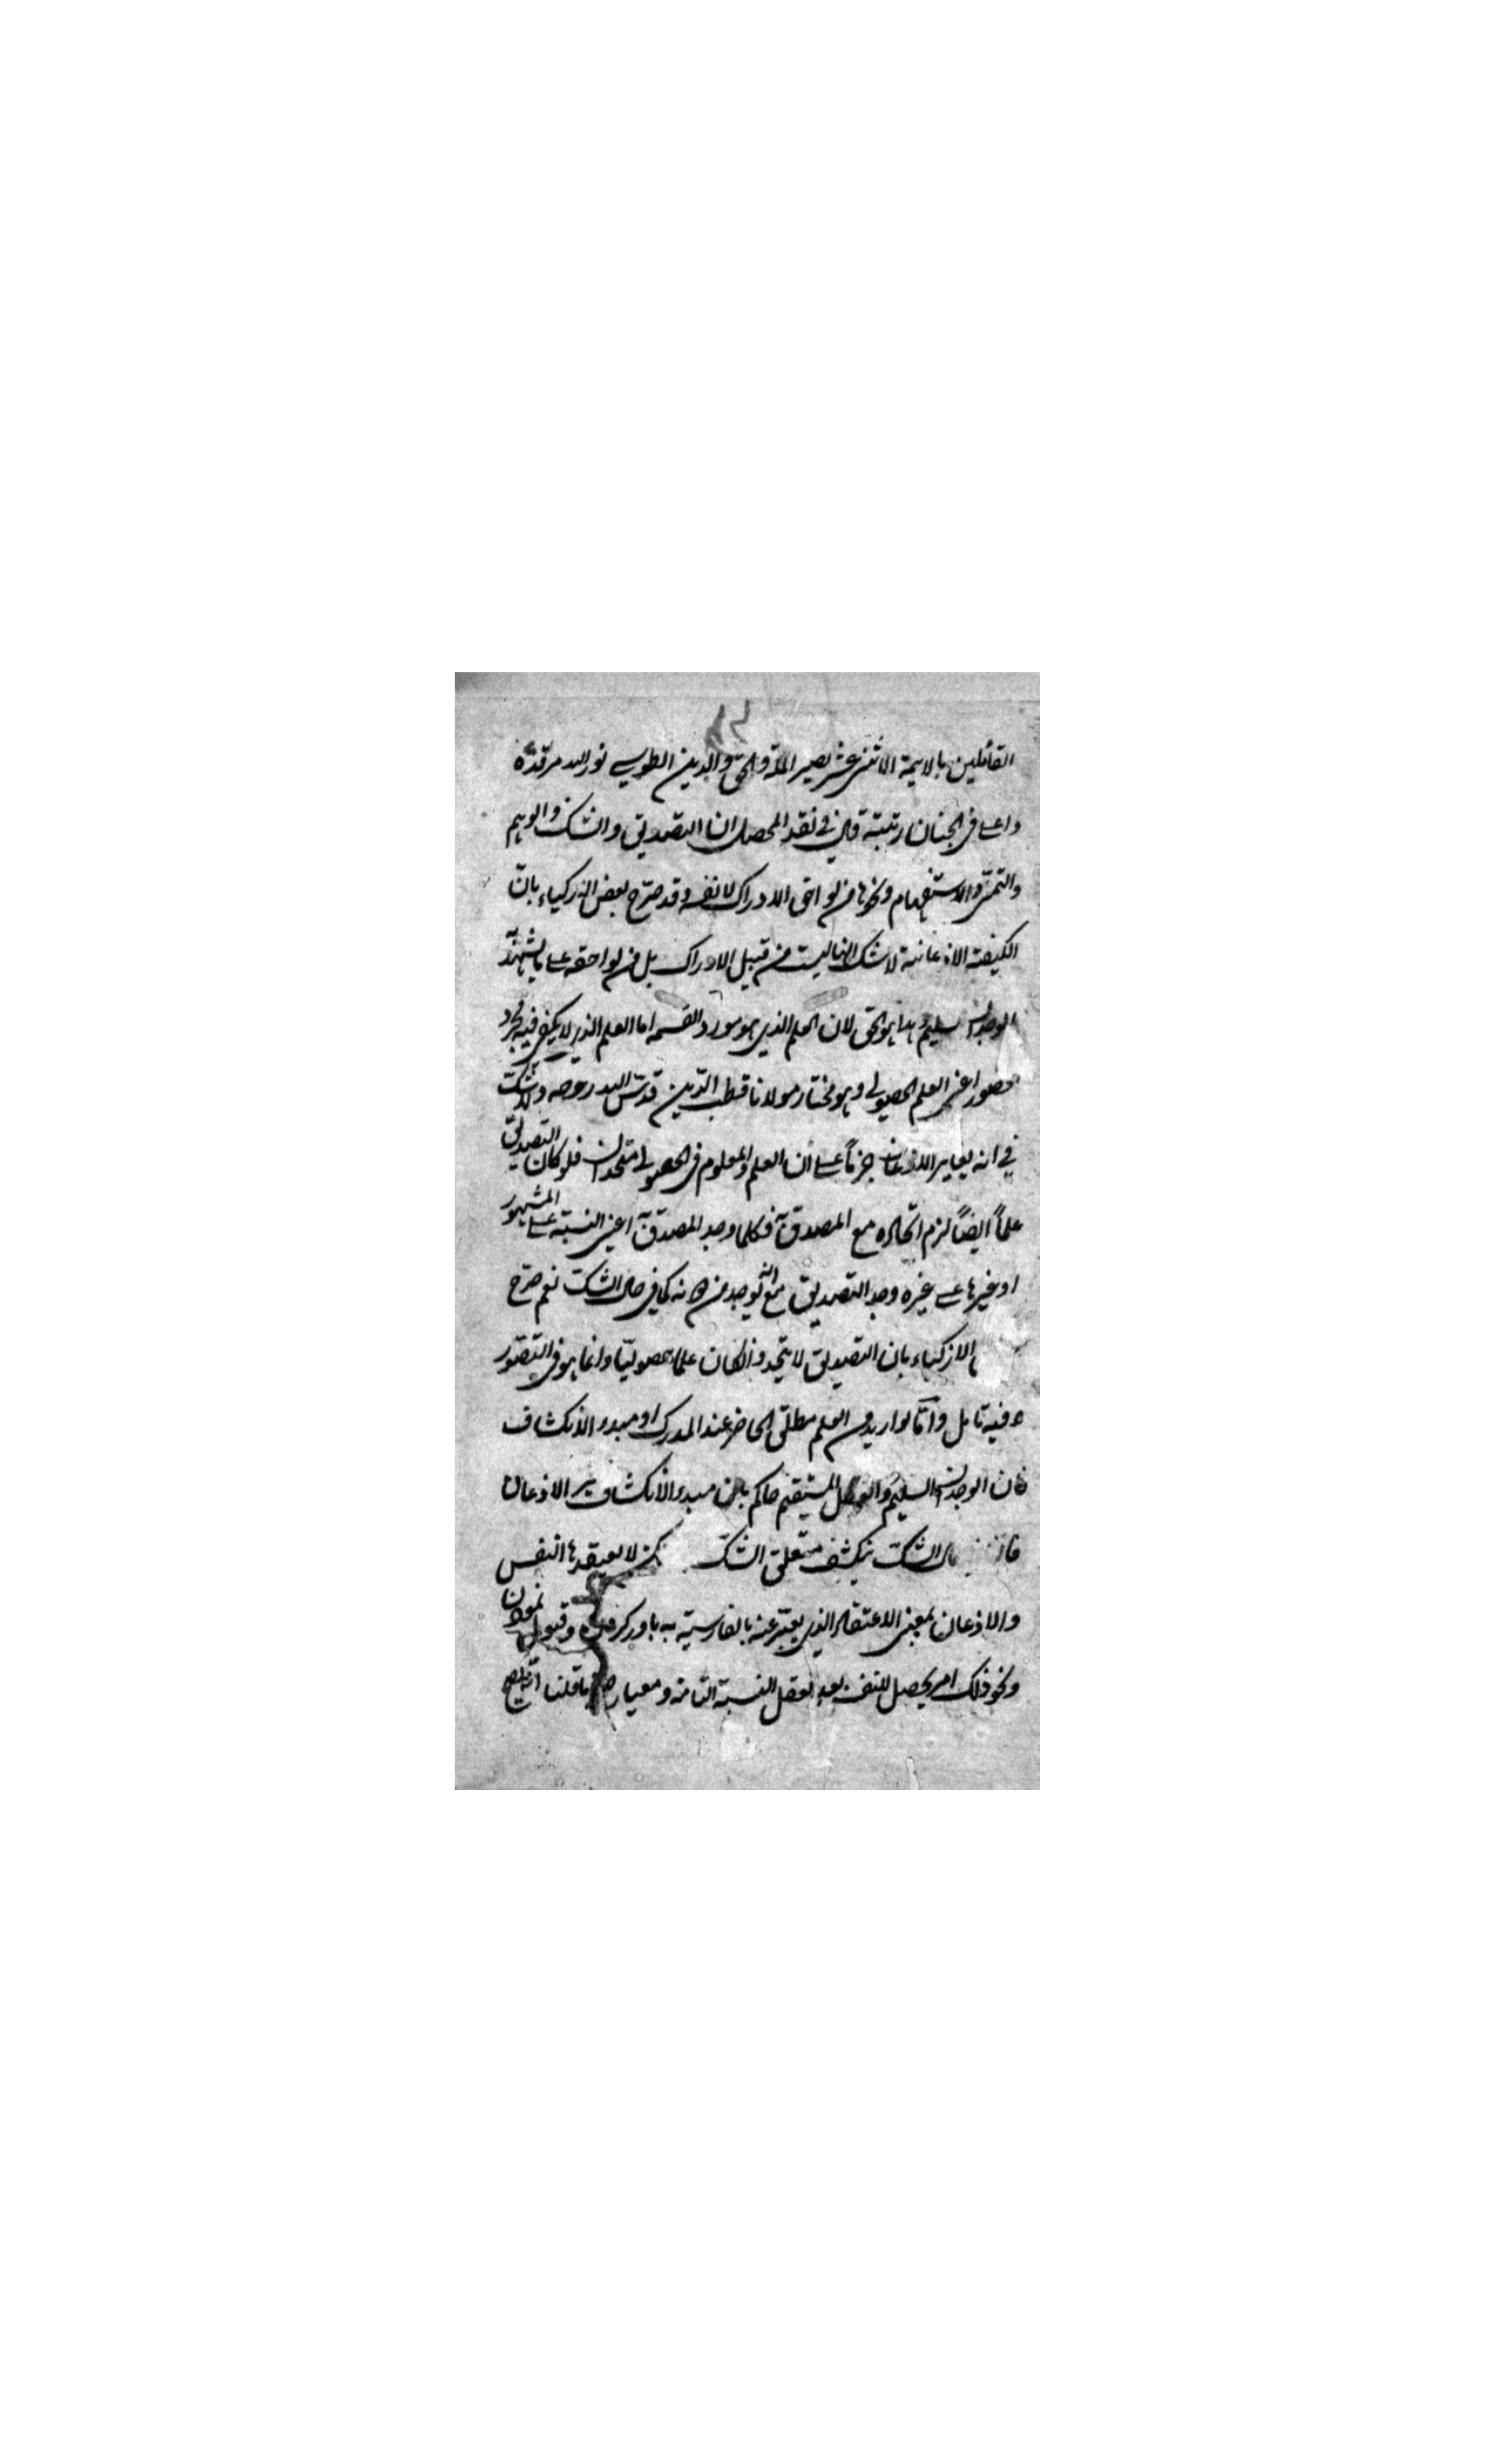 القائلين بالايمة الاثنى عشر نصير الملة والحق والدين الطوسى نور الله مرقده
واعلى فى الجنان رتبته قال فى نقد المحصل ان التصديق والشك والوهم
والتمنى والاستفهام ونحوها من لواحق الادراك لا نفسه وقد صرح بعض الازكياء بان
الكيفية الاذعانية لا شك انها ليست من قبيل الادراك بل من لواحقه على ما يشهد
الوجدان السليم وهذا هو الحق لان العلم الذى هو مورد القسمة اما العلم الذى لا يكفى فيه مجرد
حضور اعنى العلم الحصولى وهو مختار مولانا قطب الدين قدس الله روحه ولا شك
فى انه يغاير الاذعان جزماً على ان العلم والمعلوم فى الحصولى متحدان فلو كان التصديق
علماً ايضاً لزم اتحاده مع المصدق به فكلما وجد المصدق به اعنى النسبة على المشهور
او غيرها على غيره وجد التصديق مع انه يوجد بدونه كما فى حال الشك نعم صرح
الازكياء بان التصديق لا يتحد وان كان علما حصوليا وانما هو فى التصور
وفيه تامل واما لو اريد من العلم مطلق الحاضر عند المدرك او مبدء الانكشاف
فان الوجدان السليم والعقل المستقيم حاكم بان مبدء الانكشاف غير الاذعان
الشك ينكشف متعلق الشك لا يعتقدها النفس
والاذعان بمعنى الاعتقاد الذى يعبر عنه بالفارسية به باور كردن وقبول نمودن
ونحو ذلك امر يحصل للنفس بعد تعقل النسبة التامة ومعيار ما قلنا